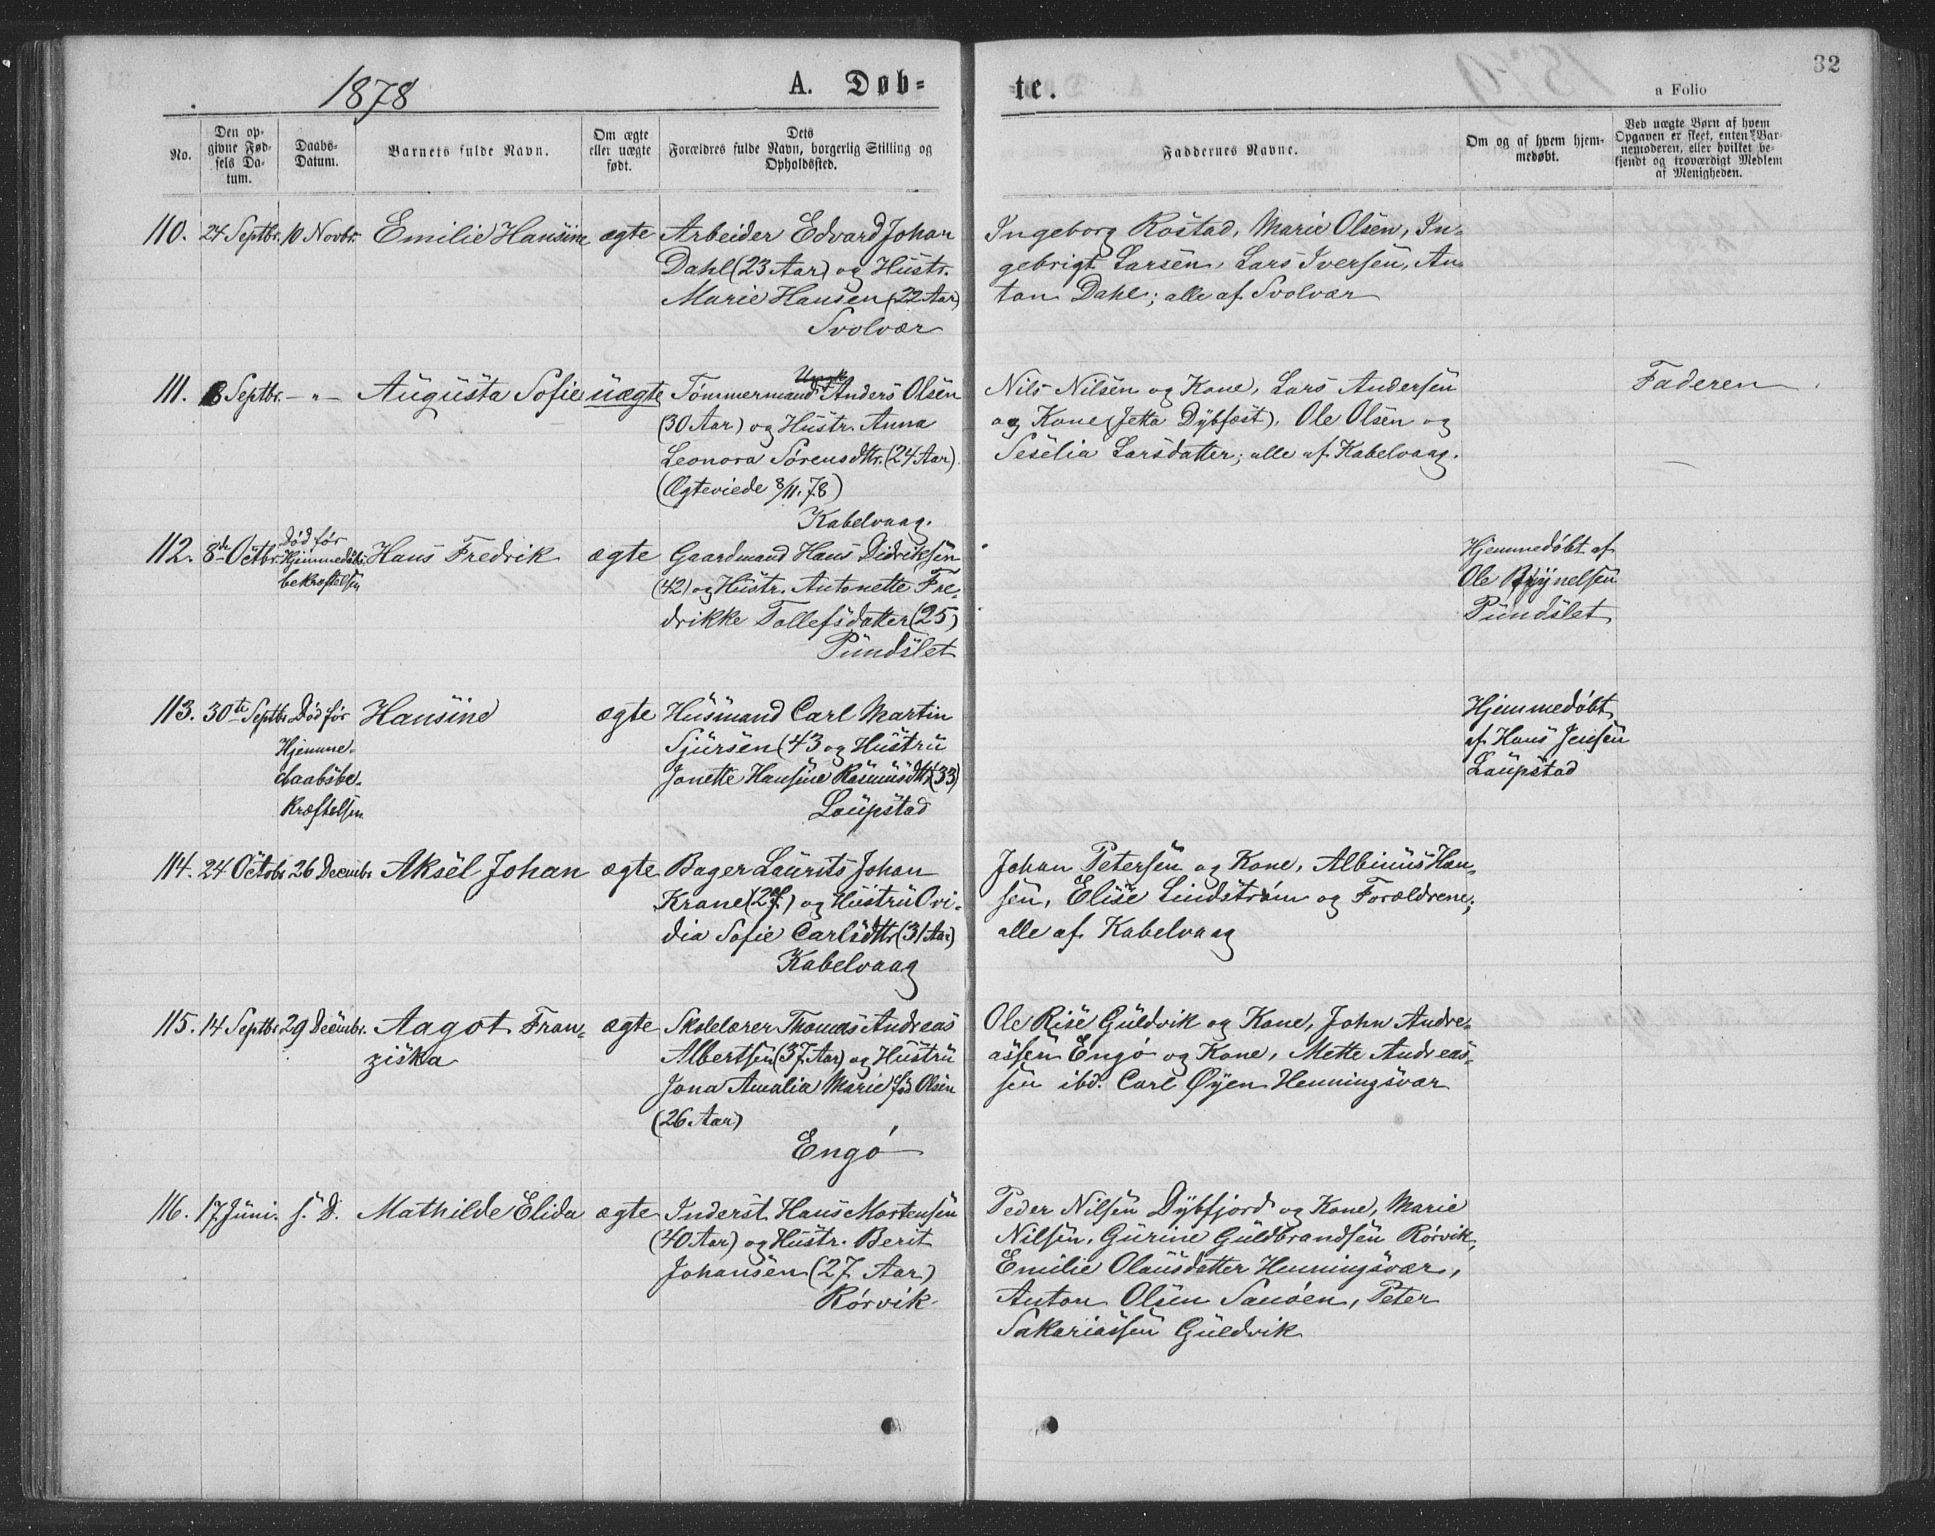 1878
A. Døb-
te.
32
a Folio
No.
Den op-
givne Fød-
sels Da-
tum.
Daabs-
Datum.
Barnets fulde Navn.
Om ægte
eller uægte
født.
Dets
Forældres fulde Navn, borgerlig Stilling og
Opholdssted.
Faddernes Navne.
Om og af hvem hjem-
medøbt.
Ved uægte Børn af hvem
Opgaven er skeet, enten Bar-
nemoderen, eller hvilket be-
kjendt og troværdigt Medlem
af Menigheden.
110. 24 Septbr. 10 Novbr. Emilie Hansine ægte Arbeider Edvard Johan
Dahl (23 Aar) og Hustr.
Marie Hansen (22 Aar)
Svolvær
Ingeborg Røstad, Marie Olsen, In-
gebrigt Larsen, Lars Iversen, An-
ton Dahl; alle af Svolvær
111. 8 Septbr. - " - Augusta Sofie uægte Tømmermand Anders Olsen
(30 Aar) og Hustr. Anna
Leonora Sørensdttr. (24 Aar).
(Ægteviede 8/11.78)
Kabelvaag.
Nils Nilsen og Kone, Lars Andersen
og Kone (Jetta Dybfæst), Ole Olsen og
Seselia Larsdatter; alle af Kabelvaag.
Faderen
112. 8de Octbr. Død før
Hjemmedøbs-
bekræftelsen
Hans Fredrik ægte Gaardmand Hans Didriksen
(42) og Hustr. Antonette Fre-
drikke Tollefsdatter (25)
Pundslet
Hjemmedøbt af
Ole Brynelsen
Pundslet
113. 30te Septbr. Død før
Hjemme-
daabsbe-
kræftelsen
Hansine ægte Husmand Carl Martin
Sjursen (43 og Hustru
Jonette Hansine Rasmusdttr (33)
Laupstad
Hjemmedøbt
af Hans Jensen
Laupstad
114. 24 Octobr 26 Decembr. Aksel Johan ægte Bager Laurits Johan
Krane (27) og Hustru Ovi-
dia Sofie Carlsdttr (31 Aar)
Kabelvaag
Johan Petersen og Kone, Albinus Han-
sen, Elise Lindstrøm og Forældrene;
alle af Kabelvaag
115. 14 Septbr. 29 Decembr. Aagot Fran-
ziska
ægte Skolelærer Thomas Andreas
Albertsen (37 Aar) og Hustru
Jona Amalia Marie fød Olsen
(26 Aar)
Engø
Ole Rise Guldvik og Kone, John Andre-
assen Engø og Kone, Mette Andreas-
sen ibd. Carl Øyen Henningsvær
116. 17 Juni. s. D. Mathilde Elida ægte Inderst Hans Mortensen
(40 Aar) og Hustr. Berit
Johansen (27 Aar)
Rørvik.
Peder Nilsen Dybfjord og Kone, Marie
Nilsen, Gurine Guldbrandsen Rørvik,
Emilie Olausdatter Henningsvær,
Anton Olsen Sanøen, Peter
Sakariassen Guldvik